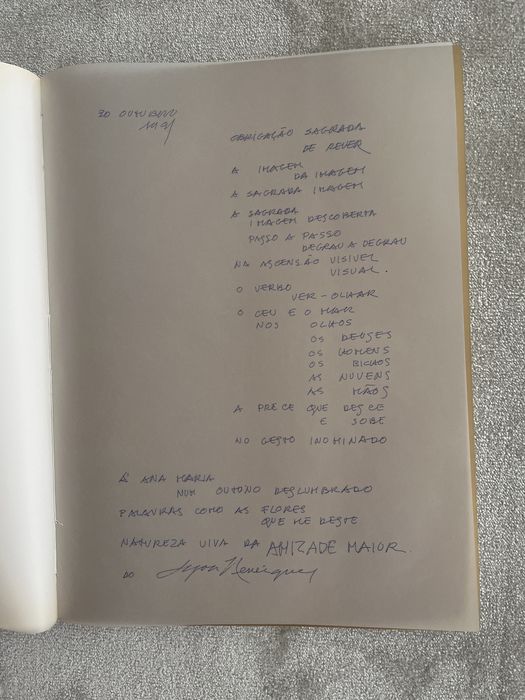 20 OUTUBRO
1991
OBRIGAÇÃO SAGRADA
DE REVER
A IMAGEM
DA IMAGEM
A SAGRADA IMAGEM
A SAGRADA
IMAGEM DESCOBERTA
PASSO A PASSO
DEGRAU A DEGRAU
NA ASCENSÃO VISIVEL
VISUAL.
O VERBO
VER-OLHAR
O CEU E O MAR
NOS OLHOS
OS DEUSES
OS HOMENS
OS BICHOS
AS NUVENS
AS MÃOS
A PRECE QUE DESCE
E SOBE
NO GESTO INOMINADO
À ANA MARIA
NUM OUTONO DESLUMBRADO
PALAVRAS COMO AS FLORES
QUE ME DESTE
NATUREZA VIVA DA AMIZADE MAIOR.
DO Henriques